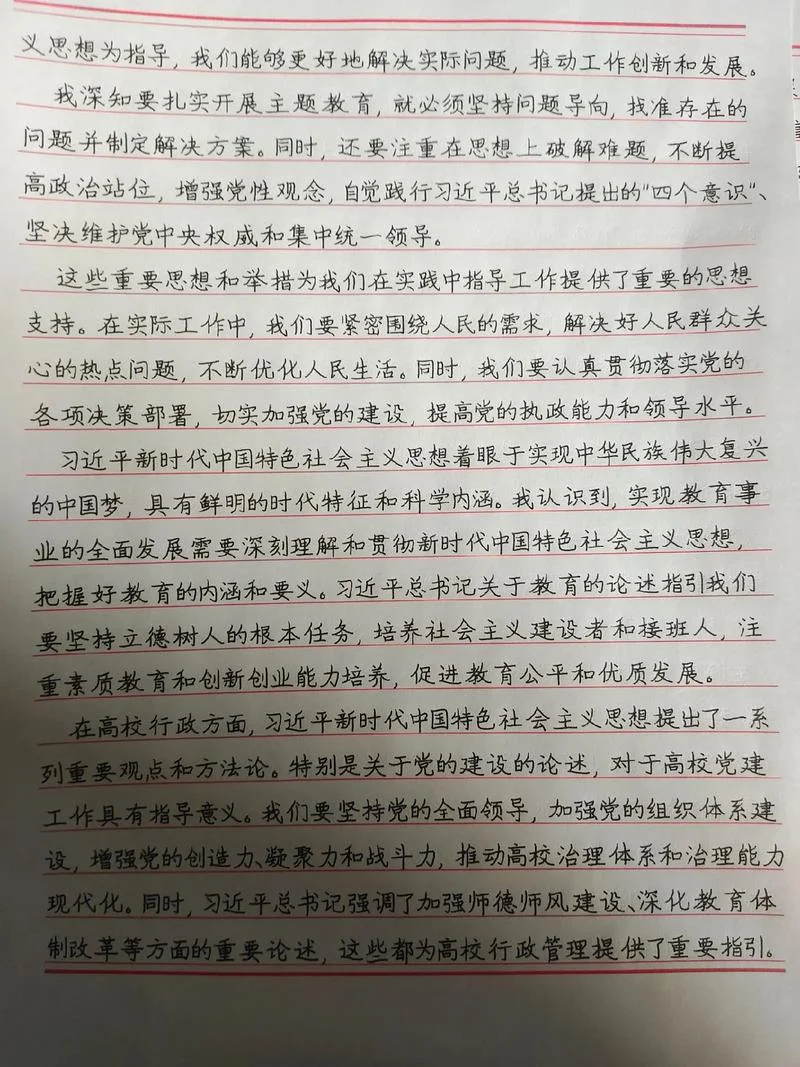 义思想为指导，我们能够更好地解决实际问题，推动工作创新和发展。
我深知要扎实开展主题教育，就必须坚持问题导向，找准存在的
问题并制定解决方案。同时，还要注重在思想上破解难题，不断提
高政治站位，增强党性观念，自觉践行习近平总书记提出的"四个意识"、
坚决维护党中央权威和集中统一领导。
这些重要思想和举措为我们在实践中指导工作提供了重要的思想
支持。在实际工作中，我们要紧密围绕人民的需求，解决好人民群众关
心的热点问题，不断优化人民生活。同时，我们要认真贯彻落实党的
各项决策部署，切实加强党的建设，提高党的执政能力和领导水平。
习近平新时代中国特色社会主义思想着眼于实现中华民族伟大复兴
的中国梦，具有鲜明的时代特征和科学内涵。我认识到，实现教育事
业的全面发展需要深刻理解和贯彻新时代中国特色社会主义思想，
把握好教育的内涵和要义。习近平总书记关于教育的论述指引我们
要坚持立德树人的根本任务，培养社会主义建设者和接班人，注
重素质教育和创新创业能力培养，促进教育公平和优质发展。
在高校行政方面，习近平新时代中国特色社会主义思想提出了一系
列重要观点和方法论。特别是关于党的建设的论述，对于高校党建
工作具有指导意义。我们要坚持党的全面领导，加强党的组织体系建
设，增强党的创造力、凝聚力和战斗力，推动高校治理体系和治理能力
现代化。同时，习近平总书记强调了加强师德师风建设、深化教育体
制改革等方面的重要论述，这些都为高校行政管理提供了重要指引。